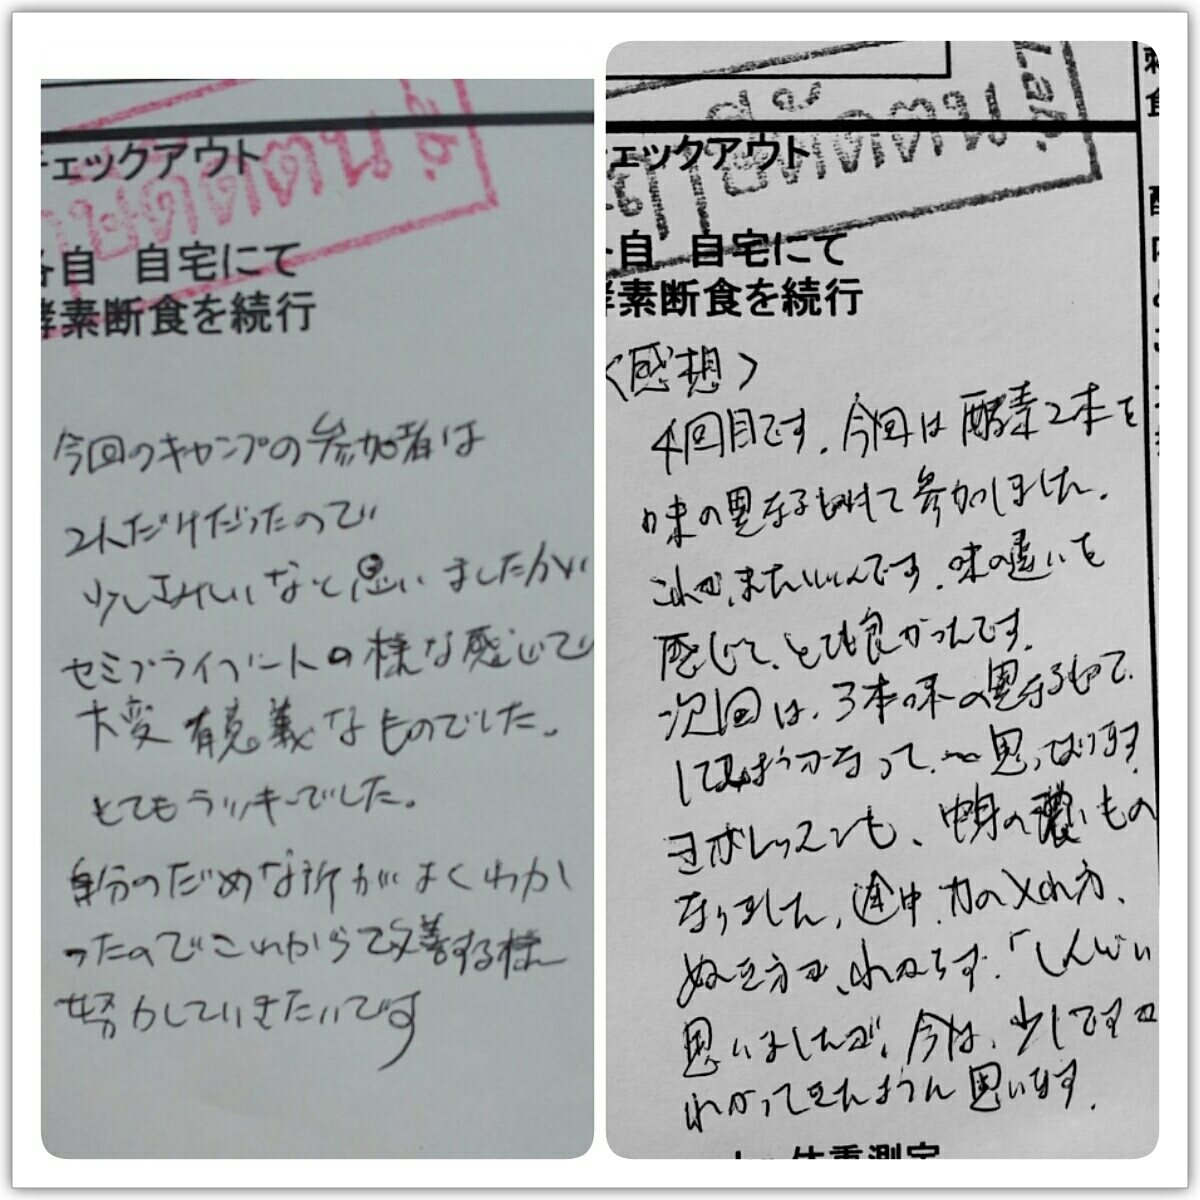 チェックアウト
各自 自宅にて
酵素断食を続行
今回のキャンプの参加者は
2人だけだったので
少しさみしいなと思いましたが
セミプライベートの様な感じで
大変有意義なものでした。
とてもラッキーでした。
自分のだめな所がよくわか
ったのでこれから改善する様
努力していきたいです
ฤๅษีดัดตน
ェックアウト
自 自宅にて
素断食を続行
〈感想〉
4回目です。今回は酵素2本を
味の異なるもので参加しました。
これが、またいいんです。味の違いを
感じて、とても良かったです。
次回は、3本味の異なるもので、
してみようかなって、〜思っております。
ヨガレッスンも、中身の濃いもの
なりました。途中、力の入れ方、
ぬき方を、われらず、「しんどい
思いましたが、今は、少しですが
わかってきたように思います。
体重測定